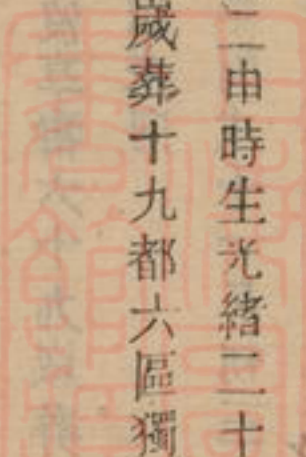 二申時生光緒二十
歲葬十九都六區獨